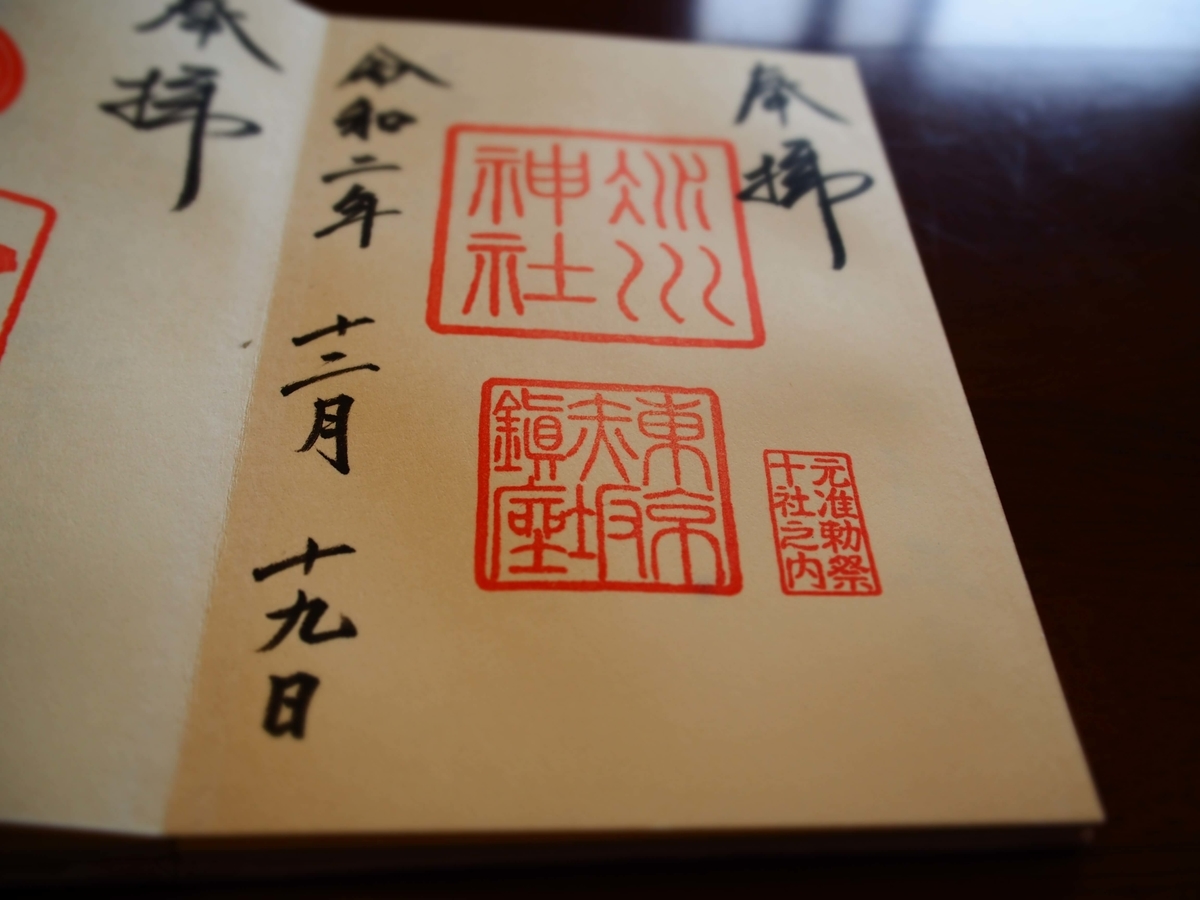 奉拝
元准勅祭
十社之内
氷川
神社
東京
赤坂
鎮座
令和二年 十二月 十九日
奉拝